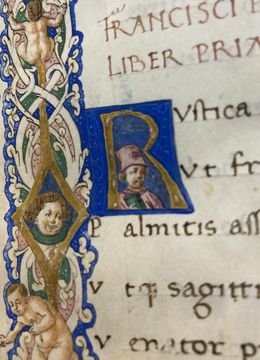 FRANCISCI P
LIBER PRI
Rustica
Vt fr
Palmitis ass
V tq; sagitt
V enator p